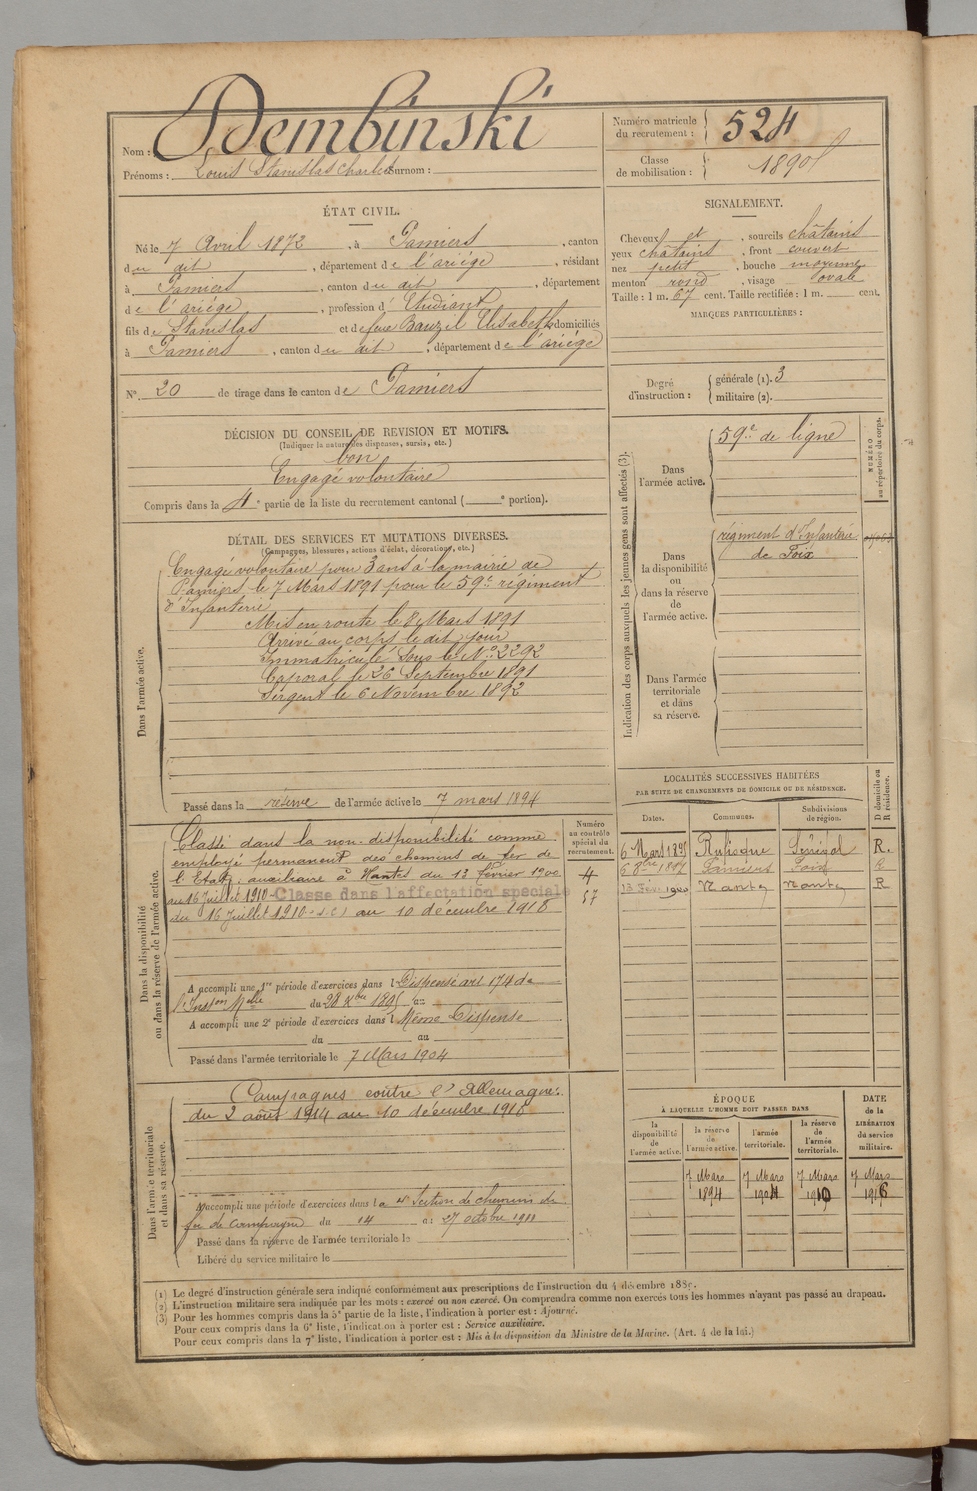 Nom : Dembinski
Prénoms : Louis Stanislas Charles Surnom :
Numéro matricule du recrutement : 524
Classe de mobilisation : 1890
ÉTAT CIVIL.
Né le 7 Avril 1872, à Pamiers, canton
du dit, département de l'ariége, résidant
à Pamiers, canton du dit, département
de l'ariége, profession d'Etudiant
fils de Stanislas et de feue Bauzil Elisabeth domiciliés
à Pamiers, canton du dit, département de l'ariége
N° 20 de tirage dans le canton de Pamiers
SIGNALEMENT.
Cheveux et, sourcils châtains
yeux châtains, front couvert
nez petit, bouche moyenne
menton rond, visage ovale
Taille : 1 m. 67 cent. Taille rectifiée : 1 m. cent.
MARQUES PARTICULIÈRES :
Degré d'instruction : générale (1). 3
militaire (2).
DÉCISION DU CONSEIL DE REVISION ET MOTIFS.
(Indiquer la nature des dispenses, sursis, etc.)
bon
Engagé volontaire
Compris dans la 4e partie de la liste du recrutement cantonal ( e portion).
DÉTAIL DES SERVICES ET MUTATIONS DIVERSES.
(Campagnes, blessures, actions d'éclat, décorations, etc.)
Dans l'armée active.
Engagé volontaire pour 3 ans à la mairie de
Pamiers le 7 Mars 1891 pour le 59e régiment
d'Infanterie
Mis en route le 8 Mars 1891
Arrivé au corps le dit jour
Immatriculé sous le No 2292
Caporal le 26 Septembre 1891
Sergent le 6 Novembre 1892
Passé dans la réserve de l'armée active le 7 mars 1894
Indication des corps auxquels les jeunes gens sont affectés (3).
NUMÉRO au répertoire du corps.
Dans l'armée active.
59e de ligne
Dans la disponibilité ou dans la réserve de l'armée active.
régiment d'Infanterie
de Foix
Dans l'armée territoriale et dans sa réserve.
Dans la disponibilité ou dans la réserve de l'armée active.
Numéro au contrôle spécial du recrutement.
Classé dans la non-disponibilité comme
employé permanent des chemins de fer de
l'Etat, auxiliaire à Nantes du 13 février 1900
4
au 16 Juillet 1910 - Classé dans l'affectation spéciale
57
du 16 Juillet 1910 (S.C.) au 10 décembre 1918
A accompli une 1re période d'exercices dans l Dispensé art 174 de
l'Inston Melle du 28 Xbre 1895 au
A accompli une 2e période d'exercices dans l Même Dispense
du au
Passé dans l'armée territoriale le 7 Mars 1904
LOCALITÉS SUCCESSIVES HABITÉES
PAR SUITE DE CHANGEMENTS DE DOMICILE OU DE RÉSIDENCE.
Dates. Communes. Subdivisions de région. D domicile ou R résidence.
6 Mars 1895 Rufisque Sénégal R.
6 8bre 1897 Pamiers Foix R
13 Févr. 1900 Nantes Nantes R
Dans l'armée territoriale et dans sa réserve.
Campagnes contre l'Allemagne :
du 2 août 1914 au 10 décembre 1918
A accompli une période d'exercices dans la 4e Section de chemins de
fer de campagne du 14 au 27 octobre 1911
Passé dans la réserve de l'armée territoriale le
Libéré du service militaire le
ÉPOQUE
À LAQUELLE L'HOMME DOIT PASSER DANS
DATE de la LIBÉRATION du service militaire.
la disponibilité de l'armée active. la réserve de l'armée active. l'armée territoriale. la réserve de l'armée territoriale.
7 Mars 1894 7 Mars 1904 7 Mars 1910 7 Mars 1916
(1) Le degré d'instruction générale sera indiqué conformément aux prescriptions de l'instruction du 4 décembre 1889.
(2) L'instruction militaire sera indiquée par les mots : exercé ou non exercé. On comprendra comme non exercés tous les hommes n'ayant pas passé au drapeau.
(3) Pour les hommes compris dans la 5e partie de la liste, l'indication à porter est : Ajourné.
Pour ceux compris dans la 6e liste, l'indication à porter est : Service auxiliaire.
Pour ceux compris dans la 7e liste, l'indication à porter est : Mis à la disposition du Ministre de la Marine. (Art. 4 de la loi.)